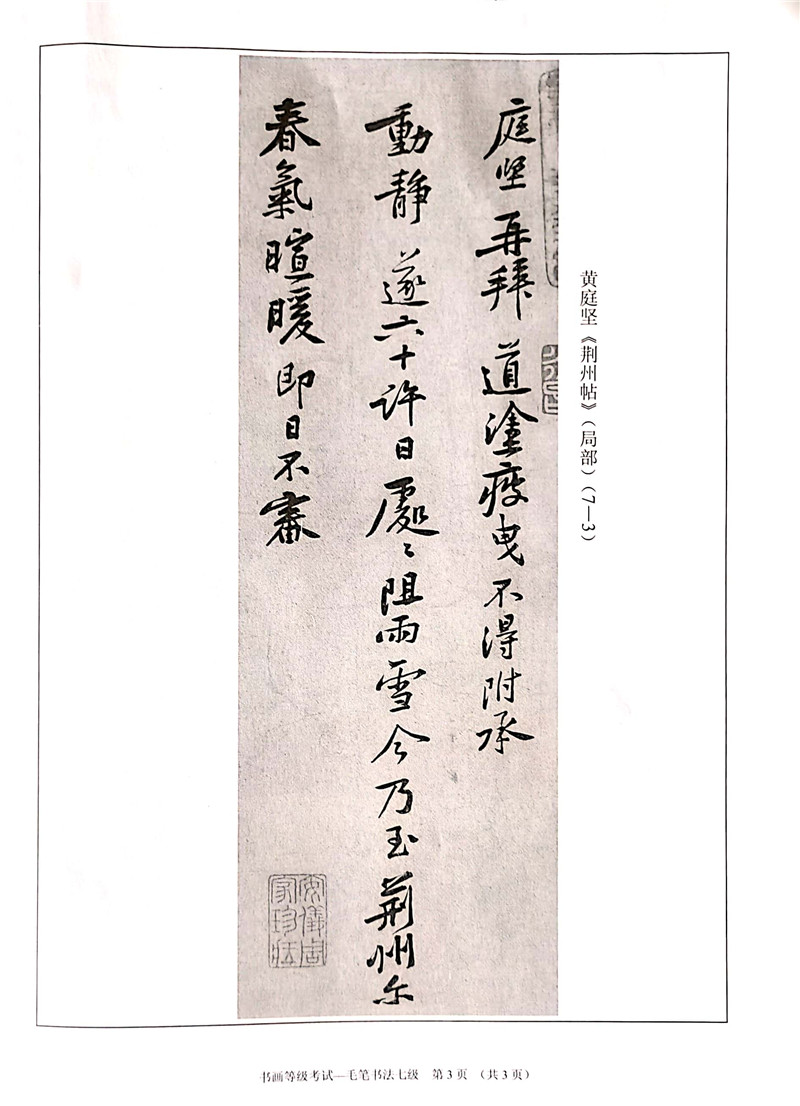 黄庭坚《荆州帖》(局部)(7—3)
庭坚再拜道塗疲曳不得附承
動静遂六十許日處〻阻雨雪今乃至荆州尔
春氣暄暖即日不審
安儀周家珍藏
书画等级考试—毛笔书法七级 第3页 (共3页)